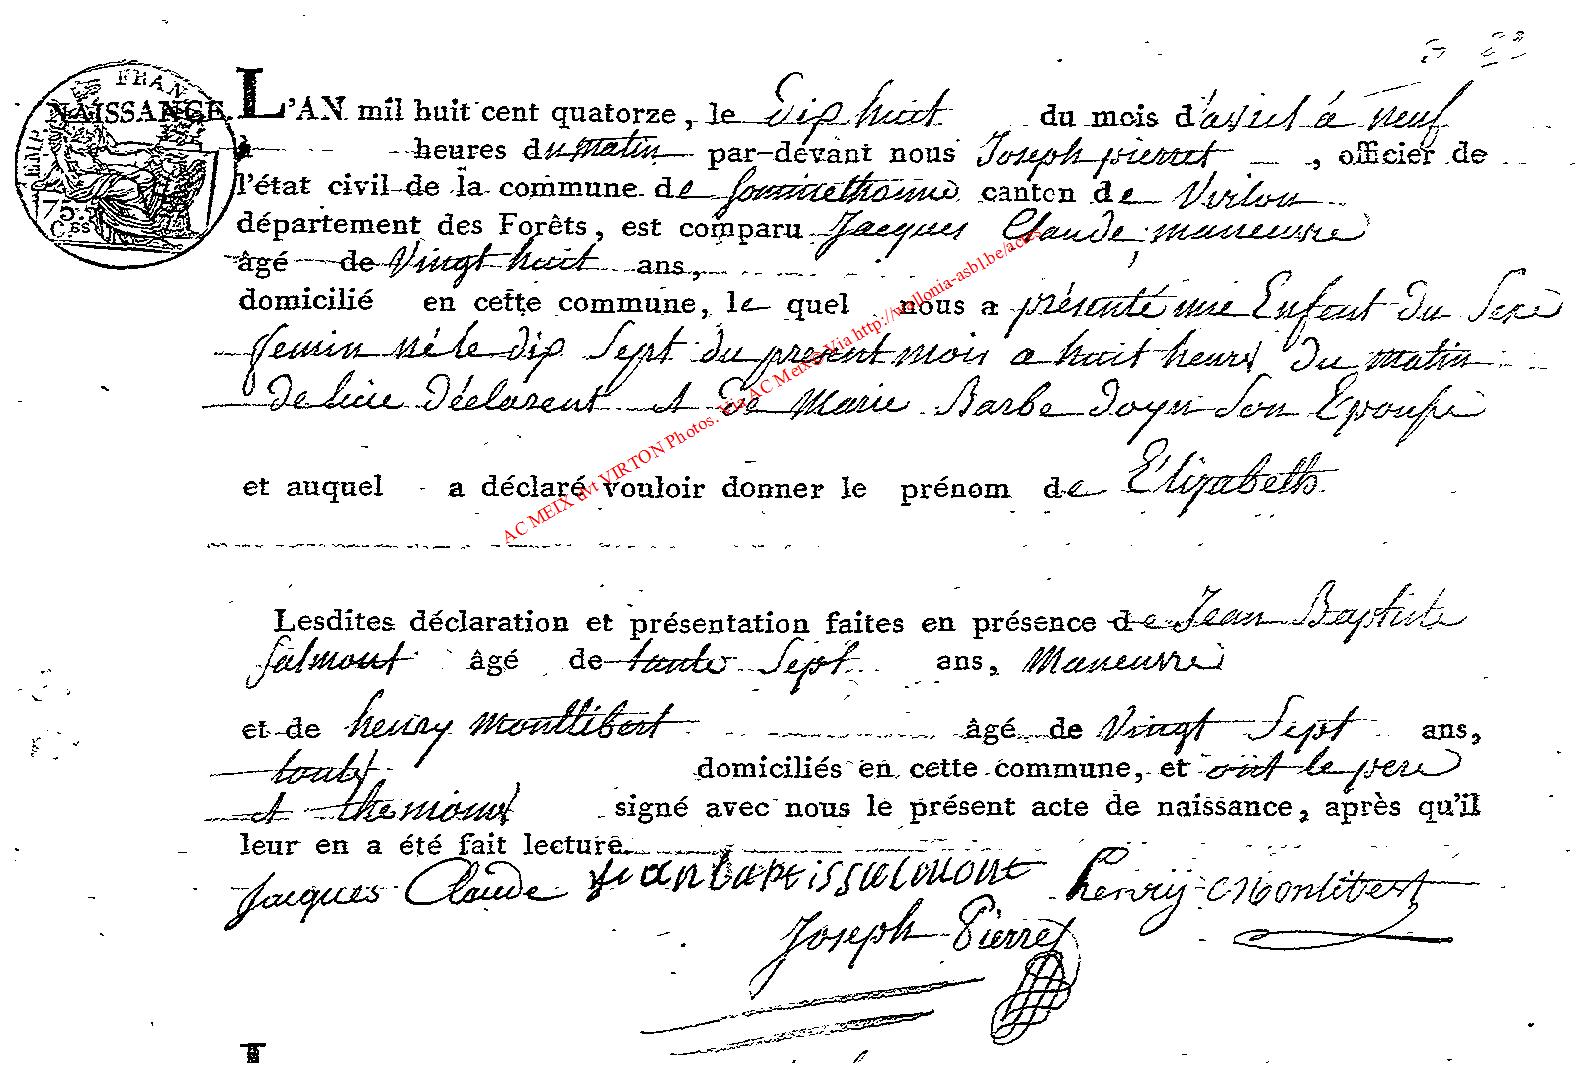 NAISSANCE. L'AN mil huit cent quatorze, le dix huit du mois d'avril à neuf
à heures du matin par-devant nous Joseph pierret, officier de
l'état civil de la commune de Sommethonne canton de Virton
département des Forêts, est comparu Jacques Claude, maneuvre
âgé de Vingt huit ans,
domicilié en cette commune, le quel nous a présenté une Enfant du Sexe
femin né le dix Sept du present mois a huit heures du matin
de luie déclarent et de Marie Barbe doyn Son Epouse
et auquel a déclaré vouloir donner le prénom de Elizabeth
Lesdites déclaration et présentation faites en présence de Jean Baptiste
Salmont âgé de tante Sept ans, Maneuvre
et de henry montlibert âgé de Vingt Sept ans,
domiciliés en cette commune, et ont le pere
et signé avec nous le présent acte de naissance, après qu'il
leur en a été fait lecture.
Jacques Claude jeanbaptissalmont henry Monlibert
Joseph Pierret
FRAN
75
Css
AC MEIX dvt VIRTON Photos. Via AC Meix & Via http://wallonia-asbl.be/actes